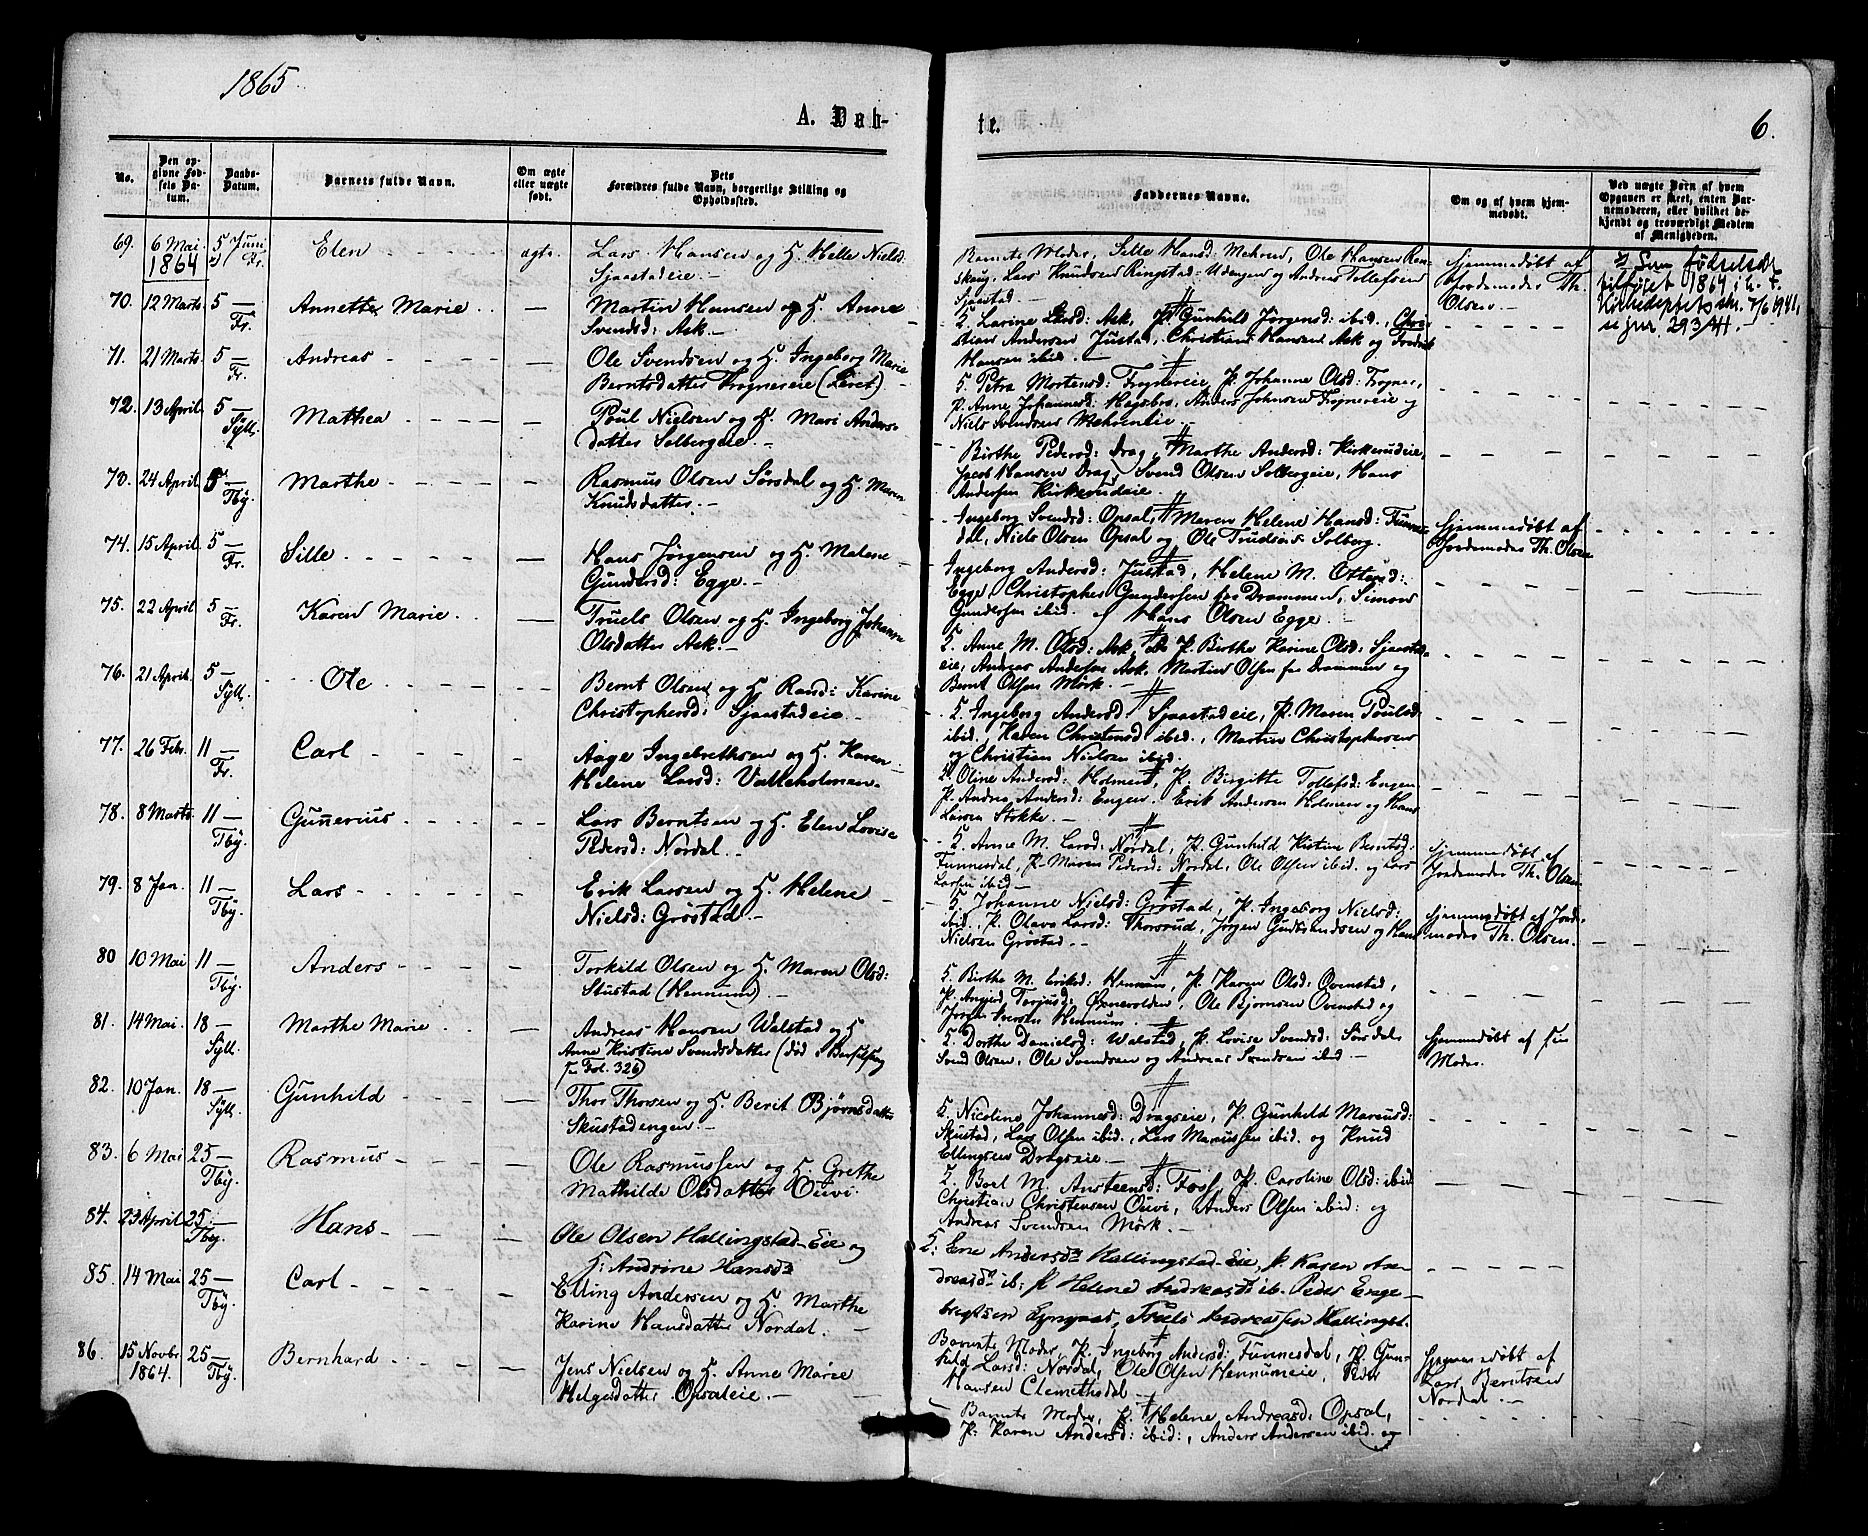 1865
A. Døb-
te.
6.
No.
Den op-
givne Fød-
sels Da-
tum.
Daabs-
Datum.
Barnets fulde Navn.
Om ægte
eller uægte
født.
Dets
Forældres fulde Navn, borgerlige Stilling og
Opholdssted.
Faddernes Navne.
Om og af hvem hjem-
medøbt.
Ved uægte Børn af hvem
Opgaven er skeet, enten Bar-
nemoderen, eller hvilket be-
kjendt og troværdigt Medlem
af Menigheden.
69. 6 Mai 1864 5 Juni Fr. Elen ægte
Lars Hansen og H. Helle Nielsd:
Sjaastadeie.
Barnets Moder, Sille Hansd: Mehren, Ole Hansen
Lars Knudsen Ringstad: Udengen og Andreas Tollefsen
Sjaastad
hjemmedøbt af
Jordemoder Th.
Olsen
70. 12 Marts 5 Fr. Annette Marie
Martin Hansen og H. Anne
Svendsd: Ask.
H. Larine Larsd: Ask, P. Gunhild Jørgensd: ibid., Chri-
stian Andersen Justad, Christian Hansen Ask og
Hansen ibid.
71. 21 Marts 5 Fr. Andreas
Ole Svendsen og H. Ingeborg Marie
Berntsdatter Frognereie
H. Petra Mortensd: Frognereie, P. Johanne Olsd: Frogner,
P. Anne Johannesd: Hagsbro, Anders Johnsen Frognereie og
Niels Svendsen Mehreneie
72. 13 April 5 Syll. Mathea
Poul Nielsen og H. Mari Anders-
datter Solbergeie.
Birthe Pedersd: Drag, Marthe Andersd: Kirkerudeie,
Jacob Hansen Drag, Svend Olsen Solbergeie, Hans
Andersen Kirkerudeie.
73. 24 April 5 Tby. Marthe
Rasmus Olsen Sørsdal og H. Maren
Knudsdatter.
Ingeborg Svendsd: Opsal, Maren Helene Hansd: Funnes-
dal, Niels Olsen Opsal og Ole Trudsen Solberg.
74. 15 April 5 Fr. Sille
Hans Jørgensen og H. Malene
Gundersd: Egge.
Ingeborg Andersd: Justad, Helene M. Ottersd:
Egge, Christopher Gundersen fra Drammen, Simon
Gundersen ibid. og Hans Olsen Egge.
hjemmedøbt af
Jordemoder Th. Olsen
75. 22 April 5 Fr. Karen Marie
Truels Olsen og H. Ingeborg Johanne
Olsdatter Ask.
H. Anne M. Olsd: Ask, P. Birthe Karine Olsd: Sjaastad-
eie, Andreas Andersen Ask, Martin Olsen fra Drammen og
Bernt Olsen Mörk.
76. 21 April 5 Syll. Ole
Bernt Olsen og H. Rand: Karine
Christophersd: Sjaastadeie
H. Ingeborg Andersd: Sjaastadeie, P. Maren Poulsd:
ibid., Karen Christensd ibid., Martin Christophersen
og Christian Nielsen ibid.
77. 26 Febr. 11 Fr. Carl
Aage Ingebrethsen og H. Karen
Helene Larsd: Valleholmen.
H. Oline Andersd: Holmen, P. Birgitte Tollefsd: Engen
P. Andrea Andersd: Engen, Erik Andersen Holmen og Hans
Larsen Stokke.
78. 8 Marts 11 Tby. Gunerius
Lars Berntsen og H. Elen Lovise
Pedersd: Nordal.
H. Anne M. Larsd: Nordal, P. Gunhild Kistine Berntsd:
Funnesdal, P. Maren Pedersd: Nordal, Ole Olsen ibid. og Lars
Larsen ibid
hjemmedøbt af
Jordemoder Th. Olsen
79. 8 Jan. 11 Tby. Lars
Erik Larsen og H. Helene
Nielsd: Gröstad
H. Johanne Nielsd: Gröstad, P. Ingeborg Nielsd:
ibid., P. Olava Larsd: Thorsrud, Jørgen Gudbrandsen og Hans
Nielsen Gröstad.
hjemmedøbt af Jorde-
moder Th. Olsen.
80 10 Mai 11 Tby. Anders
Torkild Olsen og H. Maren Olsd:
Skustad (Hennum).
H. Birthe M. Eriksd: Hennum, P. Karen Olsd: Ovenstad,
P. Terjusd: Ole Bjørnsen Ovenstad og
Jørgen Iversen Hennum.
81. 14 Mai 18 Syll. Marthe Marie
Andreas Hansen Walstad og H
Anne Kristine Svendsdatter (död i Barselseng
se Fol. 326)
H. Dorthe Danielsd: Walstad, P. Lovise Svendsd: Sörsdal
Svend Olsen, Ole Svendsen og Andreas Svendsen ibid.
hjemmedøbt af sin
Moder.
82. 10 Jan. 18 Syll. Gunhild
Thor Thorsen og H. Berit Bjørnsdatter
Skustadengen
H. Nicoline Johannesd: Dragseie, P. Gunhild Marcusd:
Skustad, Lars Olsen ibid., Lars Marcussen ibid. og Knud
Ellingsen Dragseie.
83. 6 Mai 25 Tby. Rasmus
Ole Rasmussen og H. Grethe
Mathilde Olsdatter Ouvi.
H. Boel M. Ansteensd: Foss, P. Caroline Olsd: ibid
Christian Christensen Ouvi, Anders Olsen ibid: og
Andreas Svendsen Mörk.
84. 23 April 25 Tby. Hans
Ole Olsen Hallingstad-Eie og
H: Andrine Hansdr
H: Ene Andersdr Hallingstad-Eie, P. Karen An-
dreasdr ib: P Helene Andreasd ib. Peder Enge-
bregtsen Truls Andreassen Hallingst.
85. 14 Mai 25 Tby. Carl
Elling Andersen og H. Marthe
Karine Hansdatter Nordal.
Barnets Moder, P. Ingeborg Andersd: Funnesdal, P. Gun-
hild Larsd: Nordal, Ole Olsen Hennumeie, Peder
Hansen Clemetsdal
hjemmedøbt af
Lars Berntsen
Nordal.
86. 15 Novbr 1864. 25 Tby. Bernhard
Jens Nielsen og H. Anne Marie
Helgesdatter Opsaleie.
Barnets Moder, P. Helene Andreasd: Opsal,
P. Karen Andersd: ibid:, Anders Andersen ibid. og
fødselsår
tilføiet 1864 i h. t.
Kirkedeptets skr. 7/6 1941,
jnr 293/41.